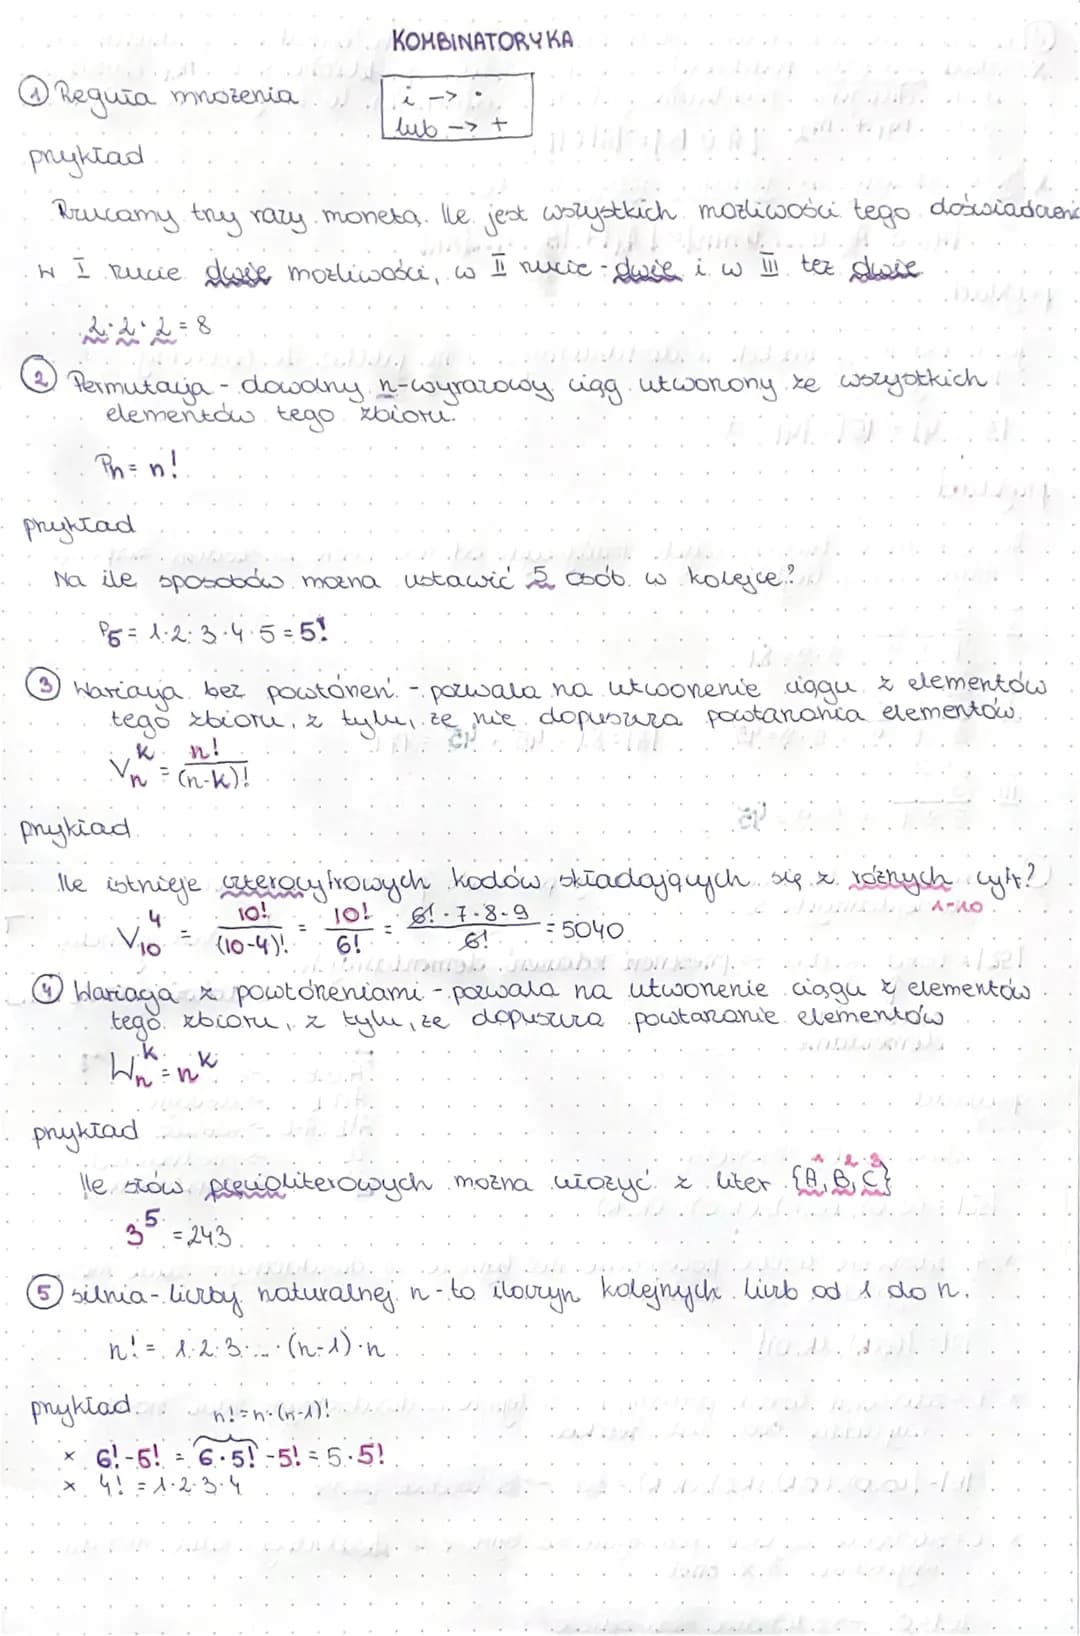 KOMBINATORYKA
① Reguła mnożenia
i -> ·
lub -> +
przykład
Rzucamy trzy razy monetą. Ile jest wszystkich możliwości tego doświadczenia
W I rzucie dwie możliwości, w II rzucie - dwie i w III też dwie
2·2·2 = 8
② Permutacja - dowolny n-wyrazowy ciąg utworzony ze wszystkich
elementów tego zbioru.
Pn = n!
przykład
Na ile sposobów można ustawić 5 osób w kolejce?
P5 = 1·2·3·4·5 = 5!
③ Wariacja bez powtórzeń - pozwala na utworzenie ciągu z elementów
tego zbioru, z tylu, że nie dopuszcza powtarzania elementów.
V_n^k = n!/(n-k)!
przykład
Ile istnieje czterocyfrowych kodów, składających się z różnych cyfr?
1-10
V_10^4 = 10!/(10-4)! = 10!/6! = 6!·7·8·9/6! = 5040
④ Wariacja z powtórzeniami - pozwala na utworzenie ciągu z elementów
tego zbioru, z tylu, że dopuszcza powtarzanie elementów
W_n^k = n^k
przykład
1 2 3
Ile słów pięcioliterowych można ułożyć z liter {A, B, C}
3^5 = 243
⑤ silnia - liczby naturalnej n - to iloczyn kolejnych liczb od 1 do n.
n! = 1·2·3·...·(n-1)·n
przykład
n! = n·(n-1)!
× 6!-5! = 6·5!-5! = 5·5!
× 4! = 1·2·3·4